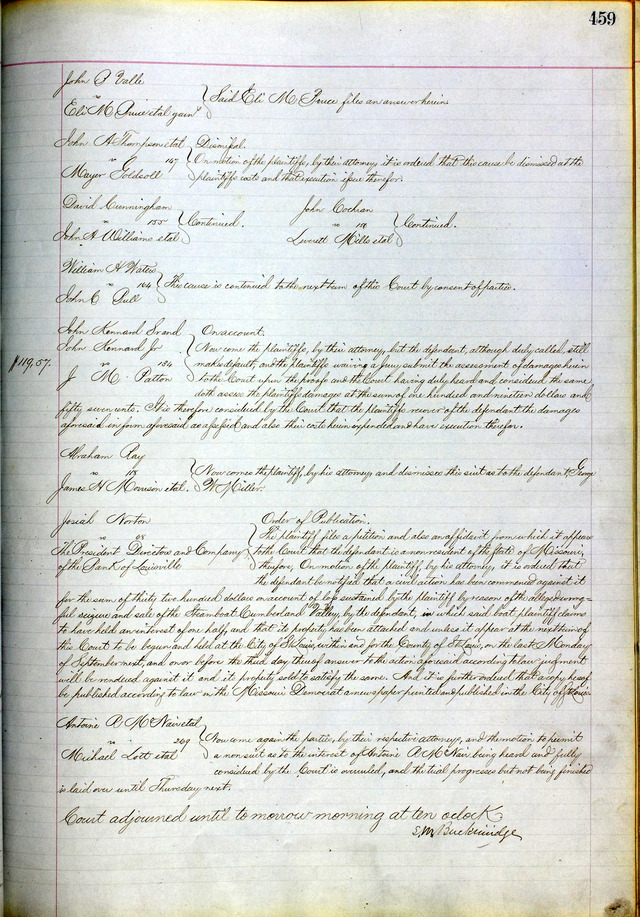 459
John P Valle
vs
Eli M Bruce et al garn^s
Said Eli M Bruce files an answer herein
John A Thompson et al
vs 147
Mayer Goldsoll
Dismissal.
On motion of the plaintiffs, by their attorney, it is ordered that this cause be dismissed at the
plaintiffs costs and that execution issue therefor.
David Cunningham
vs 155
John A Williams et al
Continued.
John Cochran
vs
Leverett Mills et al
Continued.
William H Waters
vs 164
John C Bull
This cause is continued to the next term of this Court by consent of parties.
John Kennard Sr and
John Kennard Jr
vs 184
J M Patton
$119,57.
On account.
Now come the plaintiffs, by their attorney, but the defendant, although duly called, still
makes default, and the plaintiffs waiving a jury submit the assessment of damages herein
to the Court upon the proofs and the Court having duly heard and considered the same
doth assess the plaintiffs damages at the sum of one hundred and nineteen dollars and
fifty seven cents. It is therefore considered by the Court that the plaintiffs recover of the defendant the damages
aforesaid in form aforesaid assessed and also their costs herein expended and have execution therefor.
Abraham Ray
vs
James H Morrison et al.
Now comes the plaintiff, by his attorney and dismisses this suit as to the defendant George
W Miller.
Josiah Norton
vs
The President Directors and Company
of the Bank of Louisville
Order of Publication.
The plaintiff files a petition and also an affidavit from which it appears
to the Court that the defendant is a non resident of the State of Missouri,
therefore, On motion of the plaintiff, by his attorney, it is ordered that
the defendant be notified that a civil action has been commenced against it
for the sum of thirty two hundred dollars on account of loss sustained by the plaintiff by reason of the alleged wrong=
ful seizure and sale of the Steam boat Cumberland Valley, by the defendant, in which said boat, plaintiff claims
to have held an interest of one half, and that its property has been attached and unless it appear at the next term of
this Court to be begun and held at the City of St Louis, within and for the County of St Louis, on the last Monday
of September next, and on or before the third day thereof answer to the action aforesaid according to law judgment
will be rendered against it and its property sold to satisfy the same. And it is further ordered that a copy hereof
be published according to law in the Missouri Democrat a newspaper printed and published in the City of St Louis.
Antoine R McNair et al
vs 209
Michael Lott et al
Now come again the parties, by their respective attorneys, and the motion to permit
a non suit as to the interest of Antoine R McNair being heard and fully
considered by the Court is overruled, and the trial progresses but not being finished
is laid over until Thursday next.
Court adjourned until tomorrow morning at ten oclock
S. M. Breckinridge